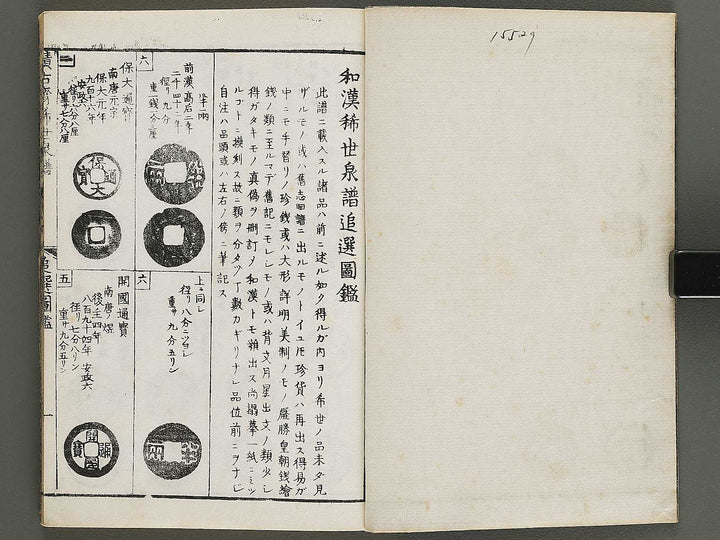 15529
和漢稀世泉譜追選圖鑑
此譜ニ載入スル諸品ハ前ニ述ル如ク得ルガ内ヨリ希世ノ品未タ見
ザルモノ或ハ舊志舊譜ニ出ルモノトイヘ𪜈珍貨ハ再出ス得易ガ
中ニモ手習リノ珍錢或ハ大形詳明美制ノモノ厭勝皇朝錢繪
錢ノ類ニ至ルマデ舊記ニモレシモノ或ハ背文月星出文ノ類少シ
得ガタキモノ真偽ヲ刪訂メ和漢トモ顆出ス尚搨摹一紙ニミツ
ルゴトニ換刻ス故ニ類ヲ分タツ丁數カギリナシ品位前ニヲナじ
自注ハ品頭或ハ左右ノ傍ニ筆記ス
六
半兩
前漢高后二年
二千四十二年
徑リ九分
重一錢八分厘
六
上ニ同シ
徑リ八分ニツヨシ
重サ九分五リン
一
保大通寳
南唐元宗
保大元年
九百十六年
安政六
徑八分八厘
重サ七分八厘
保大通寳
五
開國通寳
南唐ノ煜
後壬四年
八百九十四年 安政六
徑リ七分八リン
重サ九分五リン
開國通寳
追選圖鑑